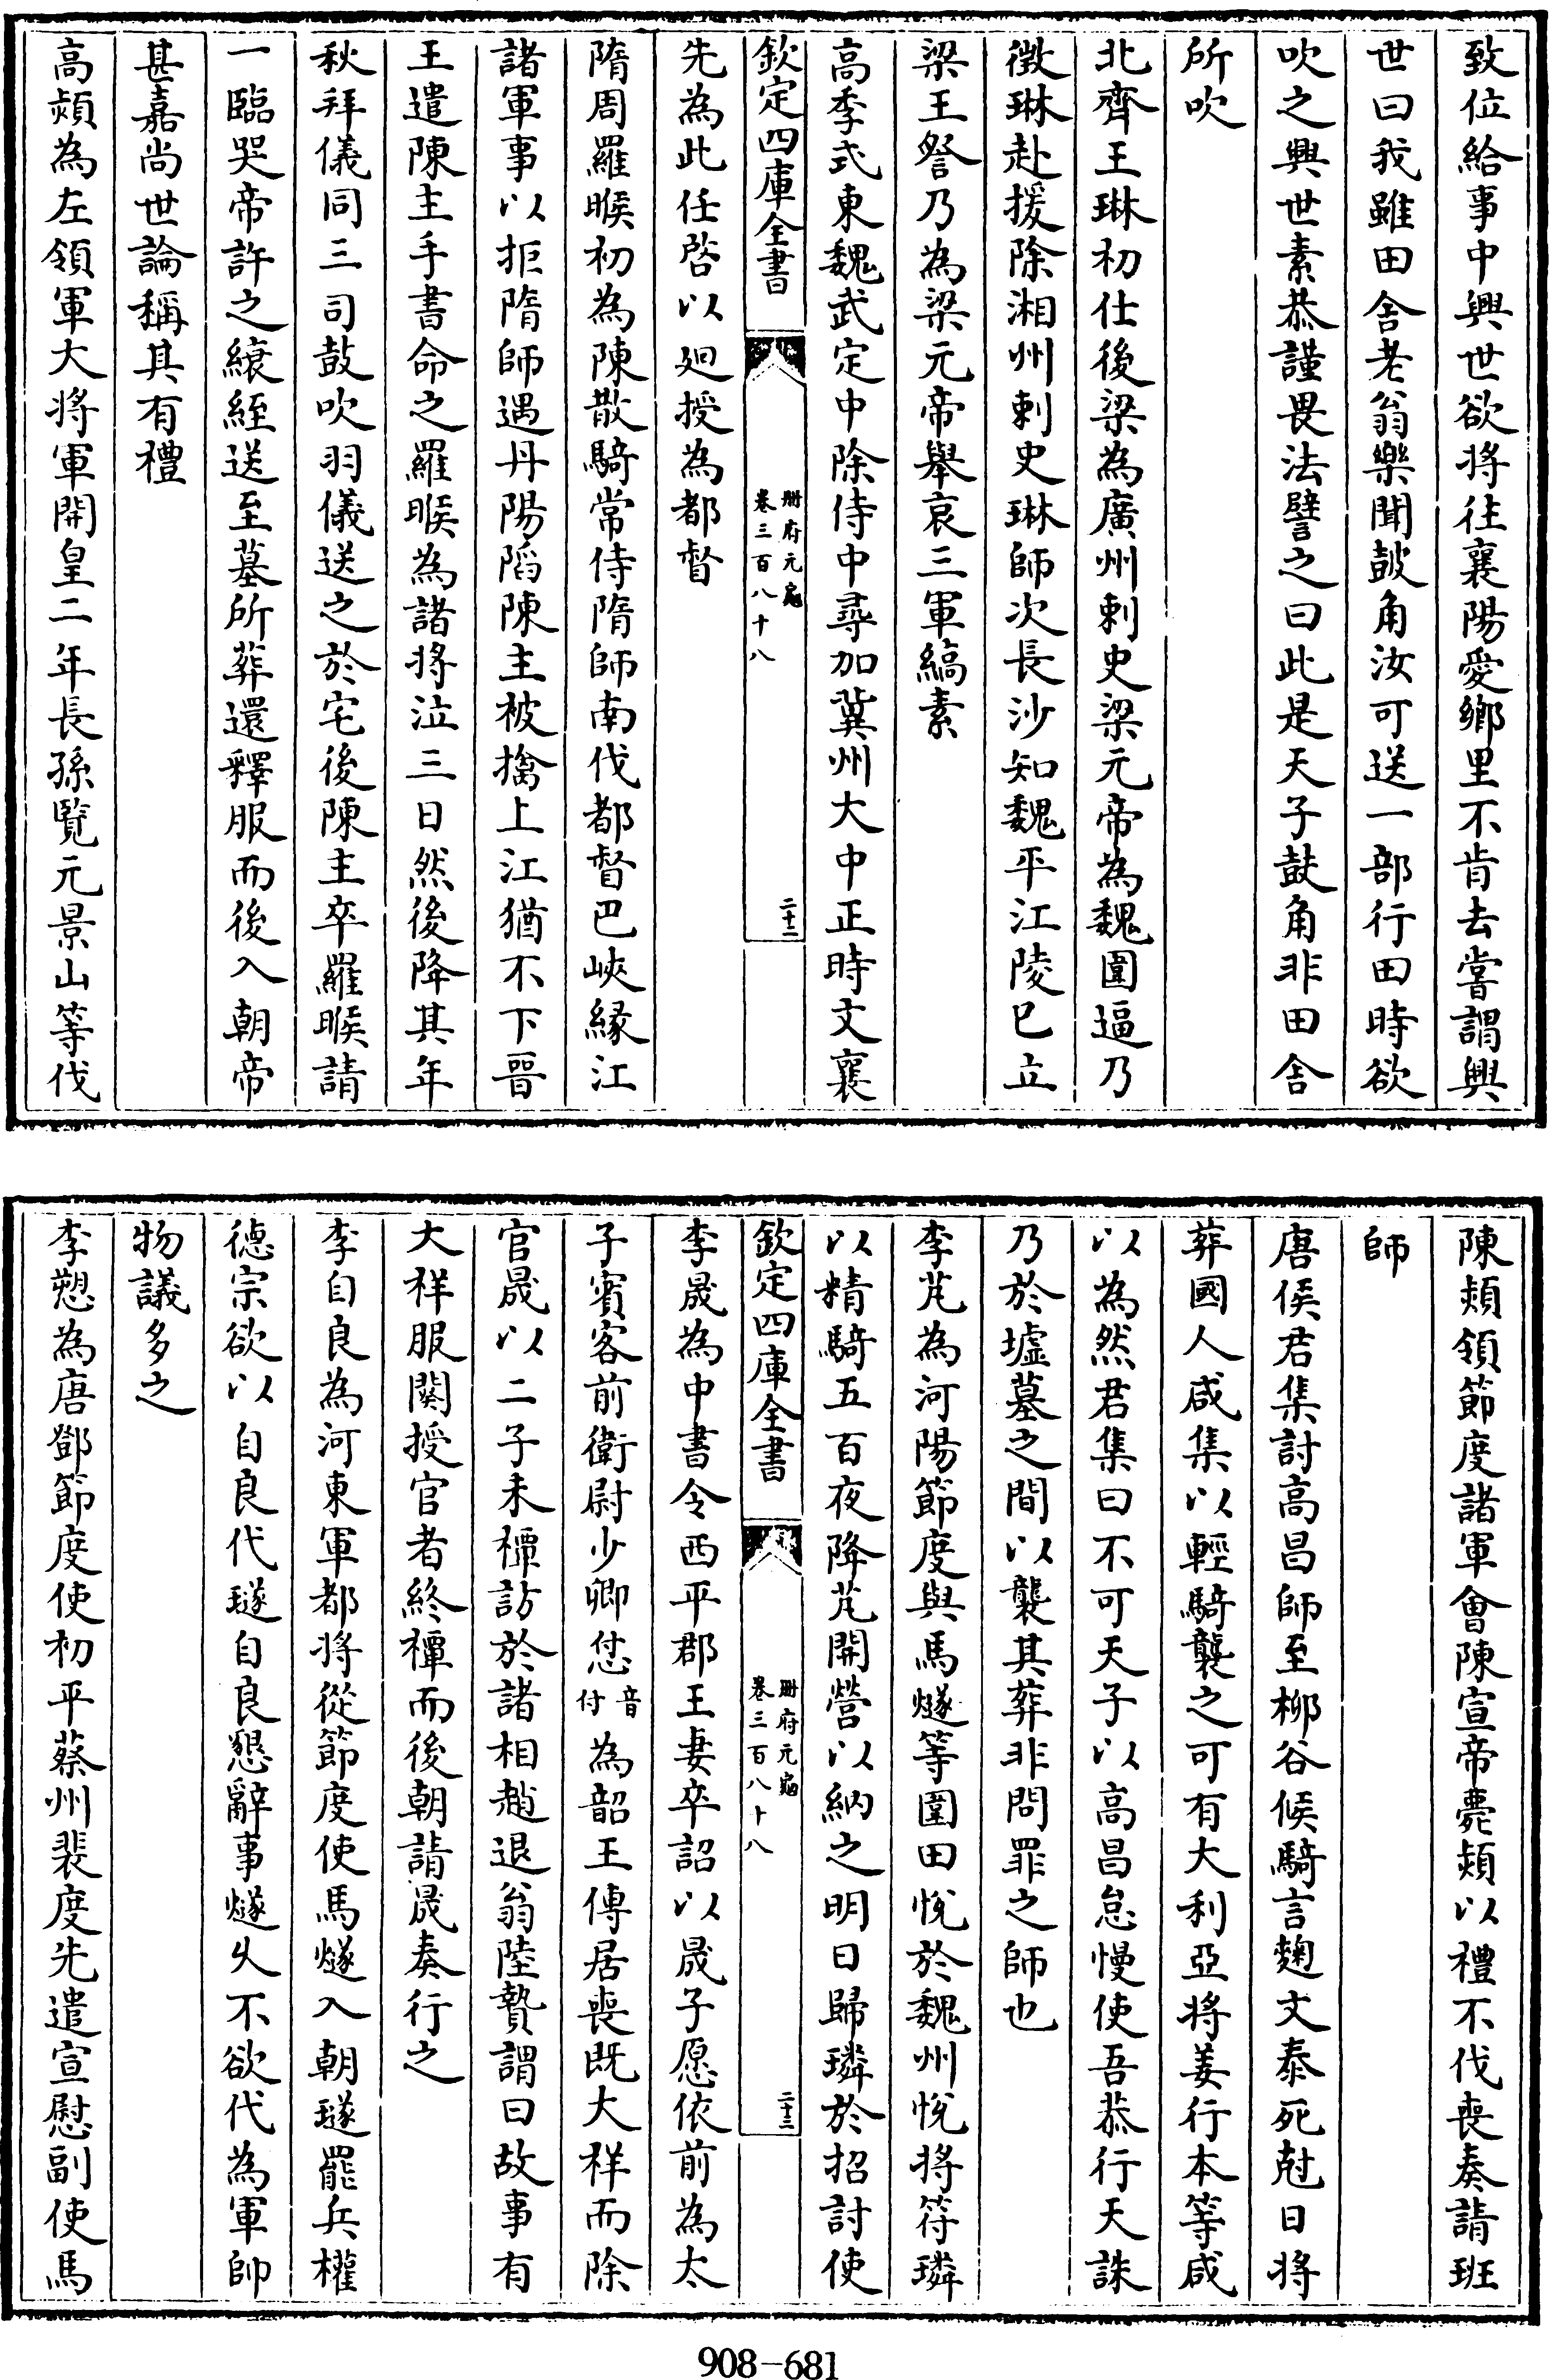 致位給事中興世欲将往襄陽愛鄉里不肯去嘗謂興
世曰我雖田舍老翁樂聞鼓角汝可送一部行田時欲
吹之興世素恭謹畏法譬之曰此是天子鼓角非田舍
所吹
北齊王琳初仕後梁為廣州刺史梁元帝為魏圍逼乃
徵琳赴援除湘州刺史琳師次長沙知魏平江陵已立
梁王詧乃為梁元帝舉哀三軍縞素
高季式東魏武定中除侍中尋加冀州大中正時文襄
欽定四庫全書
冊府元龜
卷三百八十八
二十二
先為此任啓以廻授為都督
隋周羅睺初為陳散騎常侍隋師南伐都督巴峽緣江
諸軍事以拒隋師遇丹陽䧟陳主被擒上江猶不下晉
王遣陳主手書命之羅睺為諸將泣三日然後降其年
秋拜儀同三司鼓吹羽儀送之於宅後陳主卒羅睺請
一臨哭帝許之縗絰送至墓所葬還釋服而後入朝帝
甚嘉尚世論稱其有禮
高熲為左領軍大将軍開皇二年長孫覽元景山等伐
陳熲領節度諸軍會陳宣帝薨熲以禮不伐喪奏請班
師
唐侯君集討高昌師至柳谷候騎言麴文泰死尅日将
葬國人咸集以輕騎襲之可有大利亞将姜行本等咸
以為然君集曰不可天子以高昌怠慢使吾恭行天誅
乃於墟墓之間以襲其葬非問罪之師也
李芃為河陽節度與馬燧等圍田悅於魏州悅将符璘
以精騎五百夜降芃開營以納之明日歸璘於招討使
欽定四庫全書
冊府元龜
卷三百八十八
二十三
李晟為中書令西平郡王妻卒詔以晟子愿依前為太
子賓客前衛尉少卿怤音付為韶王傅居喪既大祥而除
官晟以二子未禫訪於諸相趙退翁陸贄謂曰故事有
大祥服闋授官者終禫而後朝請晟奏行之
李自良為河東軍都将從節度使馬燧入朝璲罷兵權
德宗欲以自良代璲自良懇辭事燧乆不欲代為軍帥
物議多之
李愬為唐鄧節度使初平蔡州裴度先遣宣慰副使馬
908-681